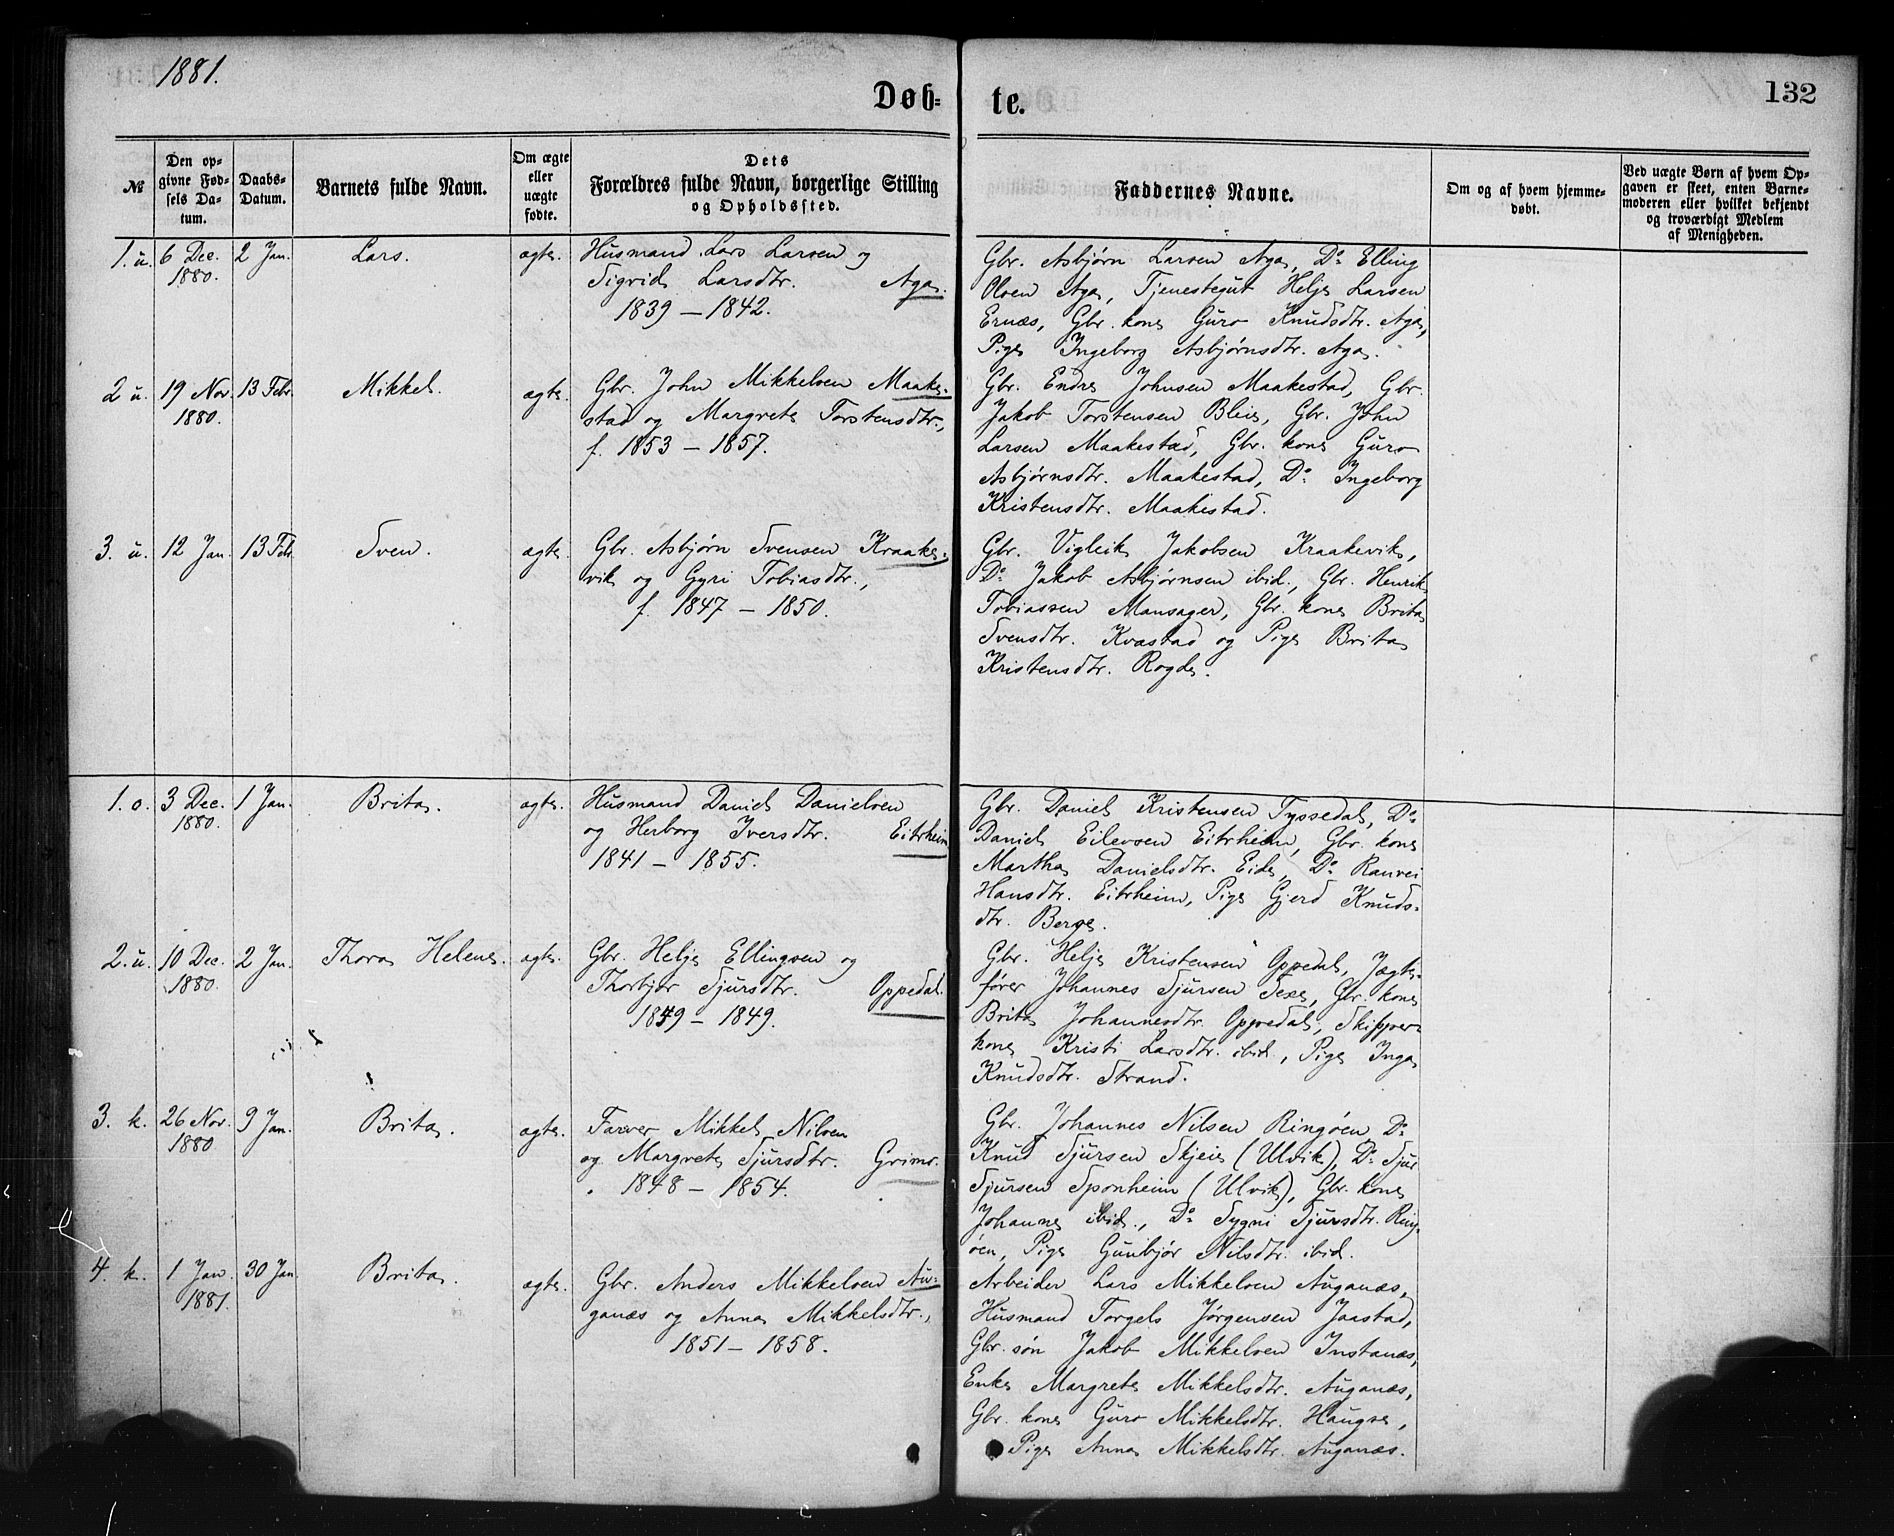 1881.
Døb=
te.
132
№
Den op=
givne Fød=
sels Da=
tum.
Daabs=
Datum.
Barnets fulde Navn.
Om ægte
eller
uægte
fødte.
Dets
Forældres fulde Navn, borgerlige Stilling
og Opholdssted.
Faddernes Navne.
Om og af hvem hjemme=
døbt.
Ved uægte Børn af hvem Op=
gaven er skeet, enten Barne=
moderen eller hvilket bekjendt
og troværdigt Medlem
af Menigheden.
1. u.
6 Dec.
1880.
2 Jan.
Lars.
ægte.
Husmand Lars Larsen og
Sigrid Larsdtr. Aga.
1839 – 1842.
Gbr. Asbjørn Larsen Aga, Do Elling
Olsen Aga, Tjenestegut Helje Larsen
Ernæs, Gbr. kone Guro Knudsdtr. Aga,
Pige Ingeborg Asbjørnsdtr. Aga.
2 u.
19 Nov.
1880.
13 Febr.
Mikkel.
ægte.
Gbr. John Mikkelsen Maake=
stad og Margrete Torstensdtr.,
f. 1853 – 1857.
Gbr. Endre Johnsen Maakestad, Gbr.
Jakob Torstensen Bleie, Gbr. John
Larsen Maakestad, Gbr. kone Guro
Asbjørnsdtr. Maakestad, Do Ingeborg
Kristensdtr. Maakestad.
3. u.
12 Jan.
13 Febr.
Sven.
ægte.
Gbr. Asbjørn Svensen Kraake=
vik og Gyri Tobiasdtr.,
f. 1847 – 1850.
Gbr. Vigleik Jakobsen Kraakevik,
Do Jakob Asbjørnsen ibid., Gbr. Henrik
Tobiassen Mansager, Gbr. kone Brita
Svensdtr. Kvæstad og Pige Brita
Kristensdtr. Rogde.
1. o.
3 Dec.
1880.
1 Jan.
Brita.
ægte.
Husmand Daniel Danielsen
og Herborg Iversdtr. Eitrheim
1841 – 1855.
Gbr. Daniel Kristensen Tyssedal, Do
Daniel Eilevsen Eitrheim, Gbr. kone
Martha Danielsdtr. Eide, Do Ranvei
Hansdtr. Eitrheim, Pige Gjerd Knuds=
dtr. Berge.
2. u.
10 Dec.
1880.
2 Jan.
Thora Helene.
ægte.
Gbr. Helje Ellingsen og
Thorbjør Sjursdtr. Oppedal.
1849 – 1849.
Gbr. Helje Kristensen Oppedal, Jægte=
fører Johannes Sjursen Sexe, Gbr. kone
Brita Johannesdtr. Oppedal, Skipper=
kone Kristi Larsdtr. ibid., Pige Inga
Knudsdtr. Strand.
3. k.
26 Nov.
1880
9 Jan.
Brita.
ægte.
Farver Mikkel Nilsen
og Margrete Sjursdtr. Grimo.
1848 – 1854.
Gbr. Johannes Nilsen Ringøen Do
Knud Sjursen Skjeie (Ulvik), Do Sjur
Sjursen Sponheim (Ulvik), Gbr. kone
Johanne ibid., Do Sygni Sjursdtr. Ring=
øen, Pige Gunbjør Nilsdtr. ibid.
4. k.
1 Jan.
1881.
30 Jan.
Brita.
ægte.
Gbr. Anders Mikkelsen Au=
ganæs og Anna Mikkelsdtr.,
1851 – 1858.
Arbeider Lars Mikkelsen Auganæs,
Husmand Torgels Jørgensen Jaastad,
Gbr. søn Jakob Mikkelsen Instanæs,
Enke Margrete Mikkelsdtr. Auganæs,
Gbr. kone Guro Mikkelsdtr. Haugse,
Pige Anna Mikkelsdtr. Auganæs.